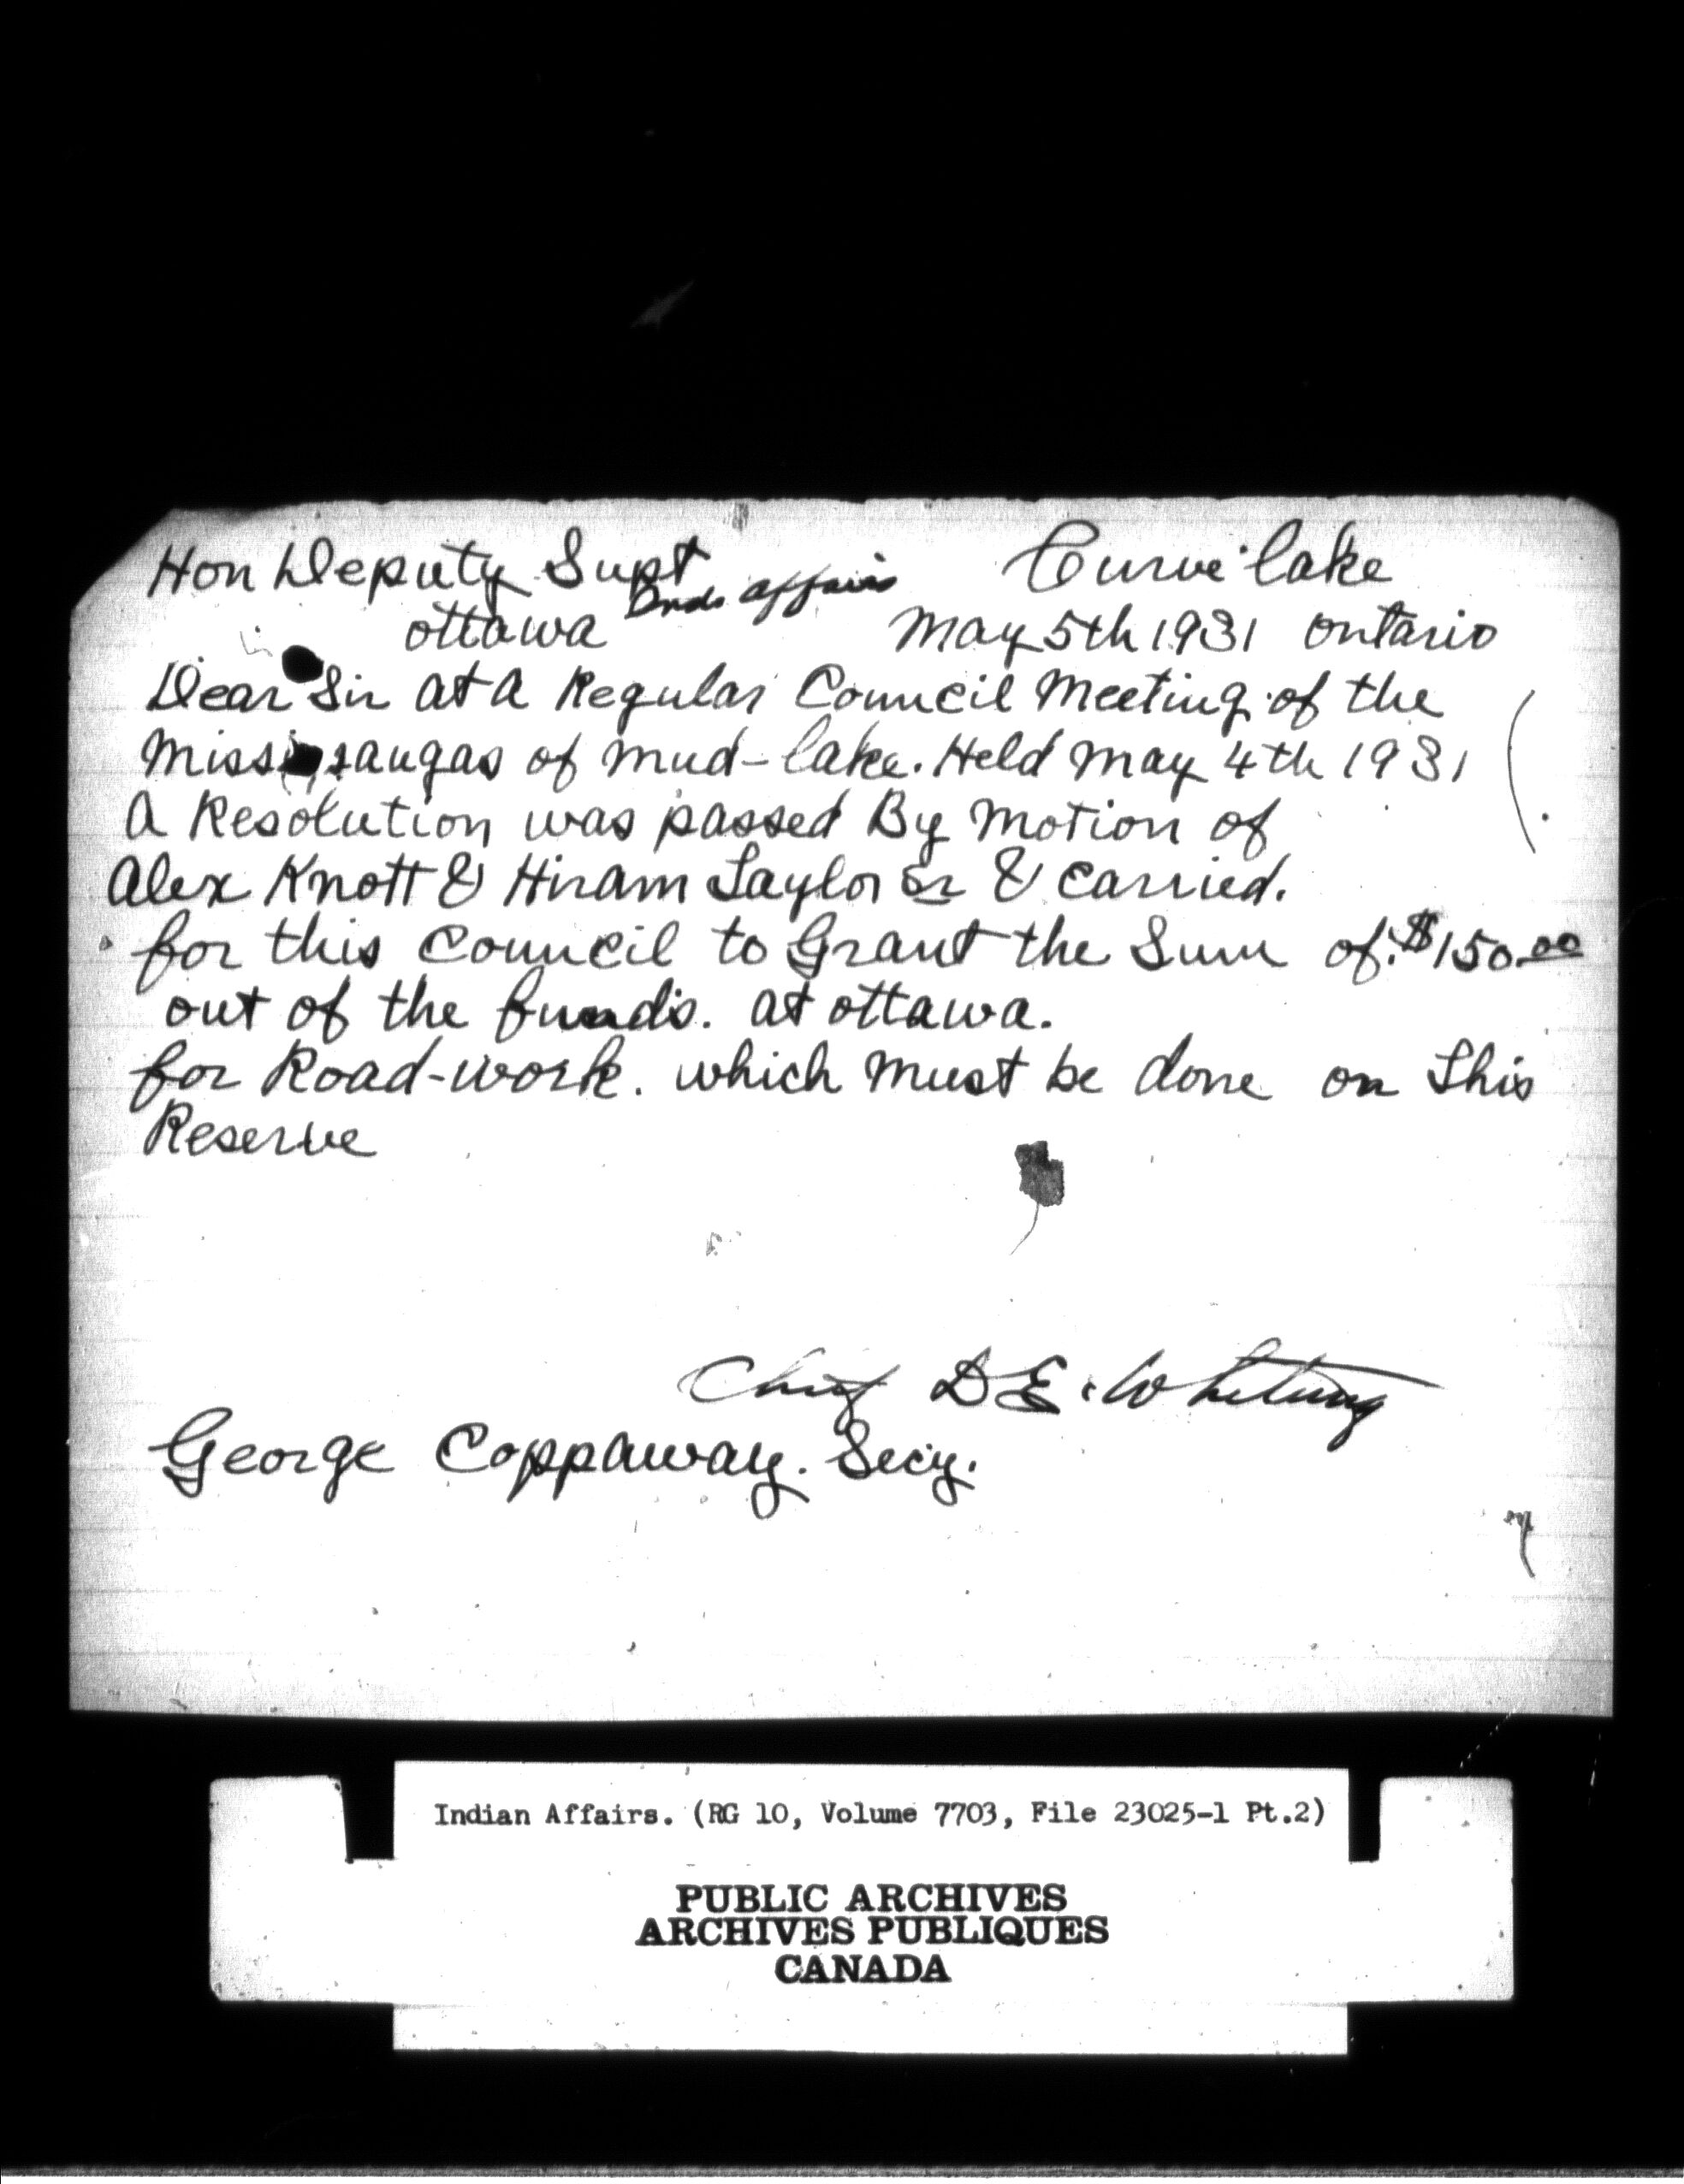 Hon Deputy Supt Curve lake
Inds affairs
ottawa May 5th 1931 ontario
Dear Sir at a Regular Council Meeting of the
Mississaugas of Mud-lake. Held May 4th 1931
A Resolution was passed By Motion of
Alex Knott & Hiram Taylor Sr & carried.
for this Council to Grant the Sum of $150.00
out of the funds. at ottawa.
for Road-work. which must be done on This
Reserve
Chief D E. Whetung
George Coppaway. Secy.
Indian Affairs. (RG 10, Volume 7703, File 23025-1 Pt.2)
PUBLIC ARCHIVES
ARCHIVES PUBLIQUES
CANADA